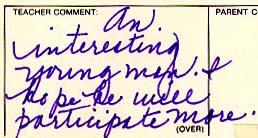 TEACHER COMMENT:
PARENT C
An
interesting
young man. I
hope he will
(OVER)
participate more.